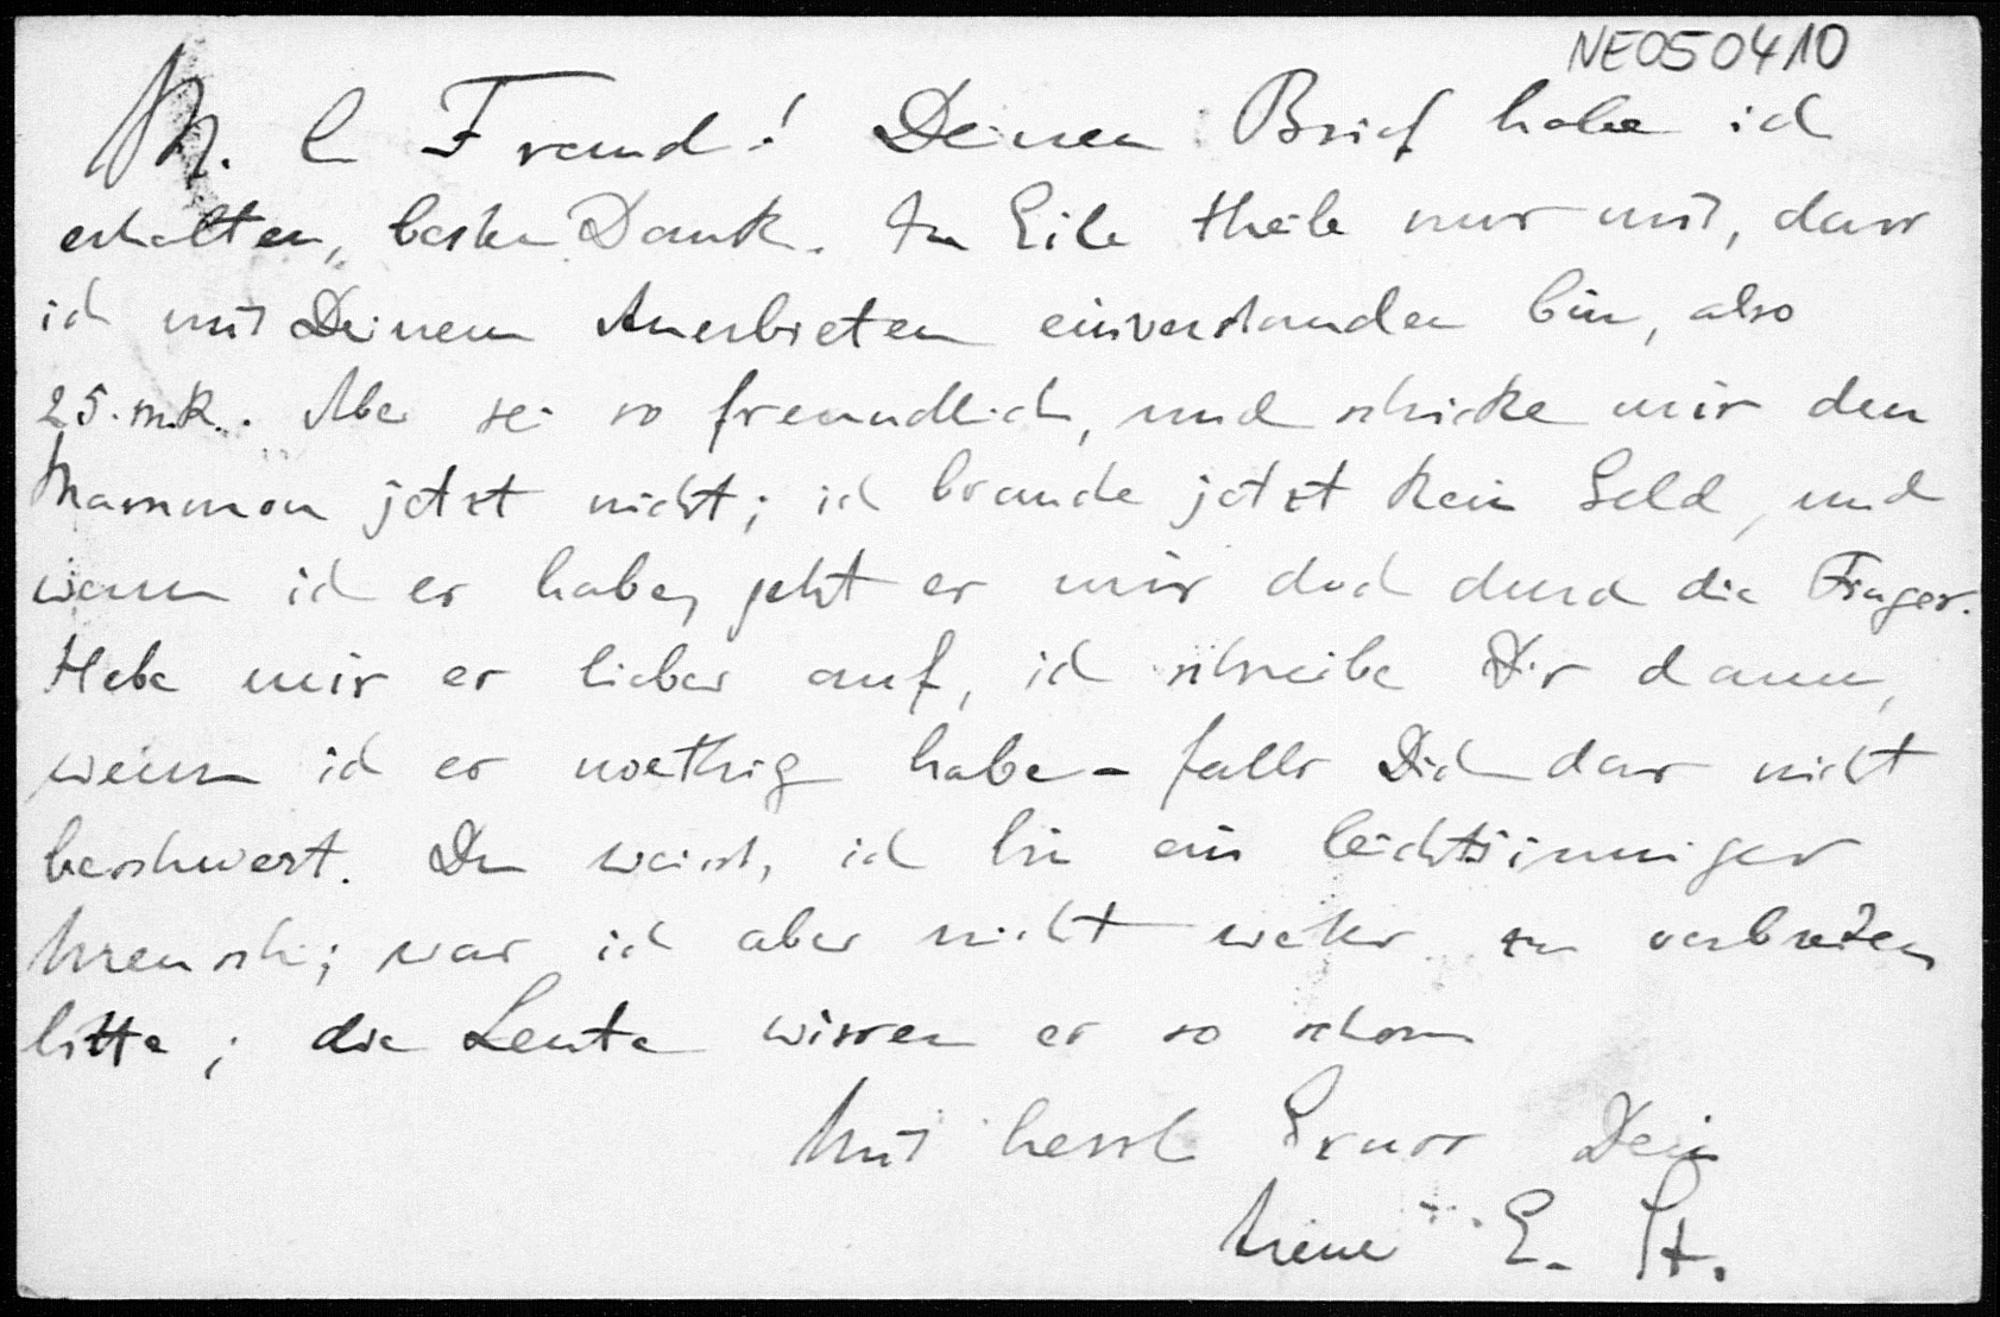 NE050410
M. l Freund! Deinen Brief habe ich
erhalten, besten Dank. In Eile theile nur mit, dass
ich mit Deinem Anerbieten einverstanden bin, also
25. mk.. Aber sei so freundlich, und schicke mir den
Mammon jetzt nicht; ich brauche jetzt kein Geld, und
wenn ich es habe, geht es mir doch durch die Finger.
Hebe mir es lieber auf, ich schreibe Dir dann,
wenn ich es noethig habe - falls Dich das nicht
beschwert. Du weisst, ich bin ein leichtsinniger
Mensch; was ich aber nicht weiter zu verbreiten
bitte; die Leute wissen es so schon
Mit herzl Gruss Dein
treuer E. St.